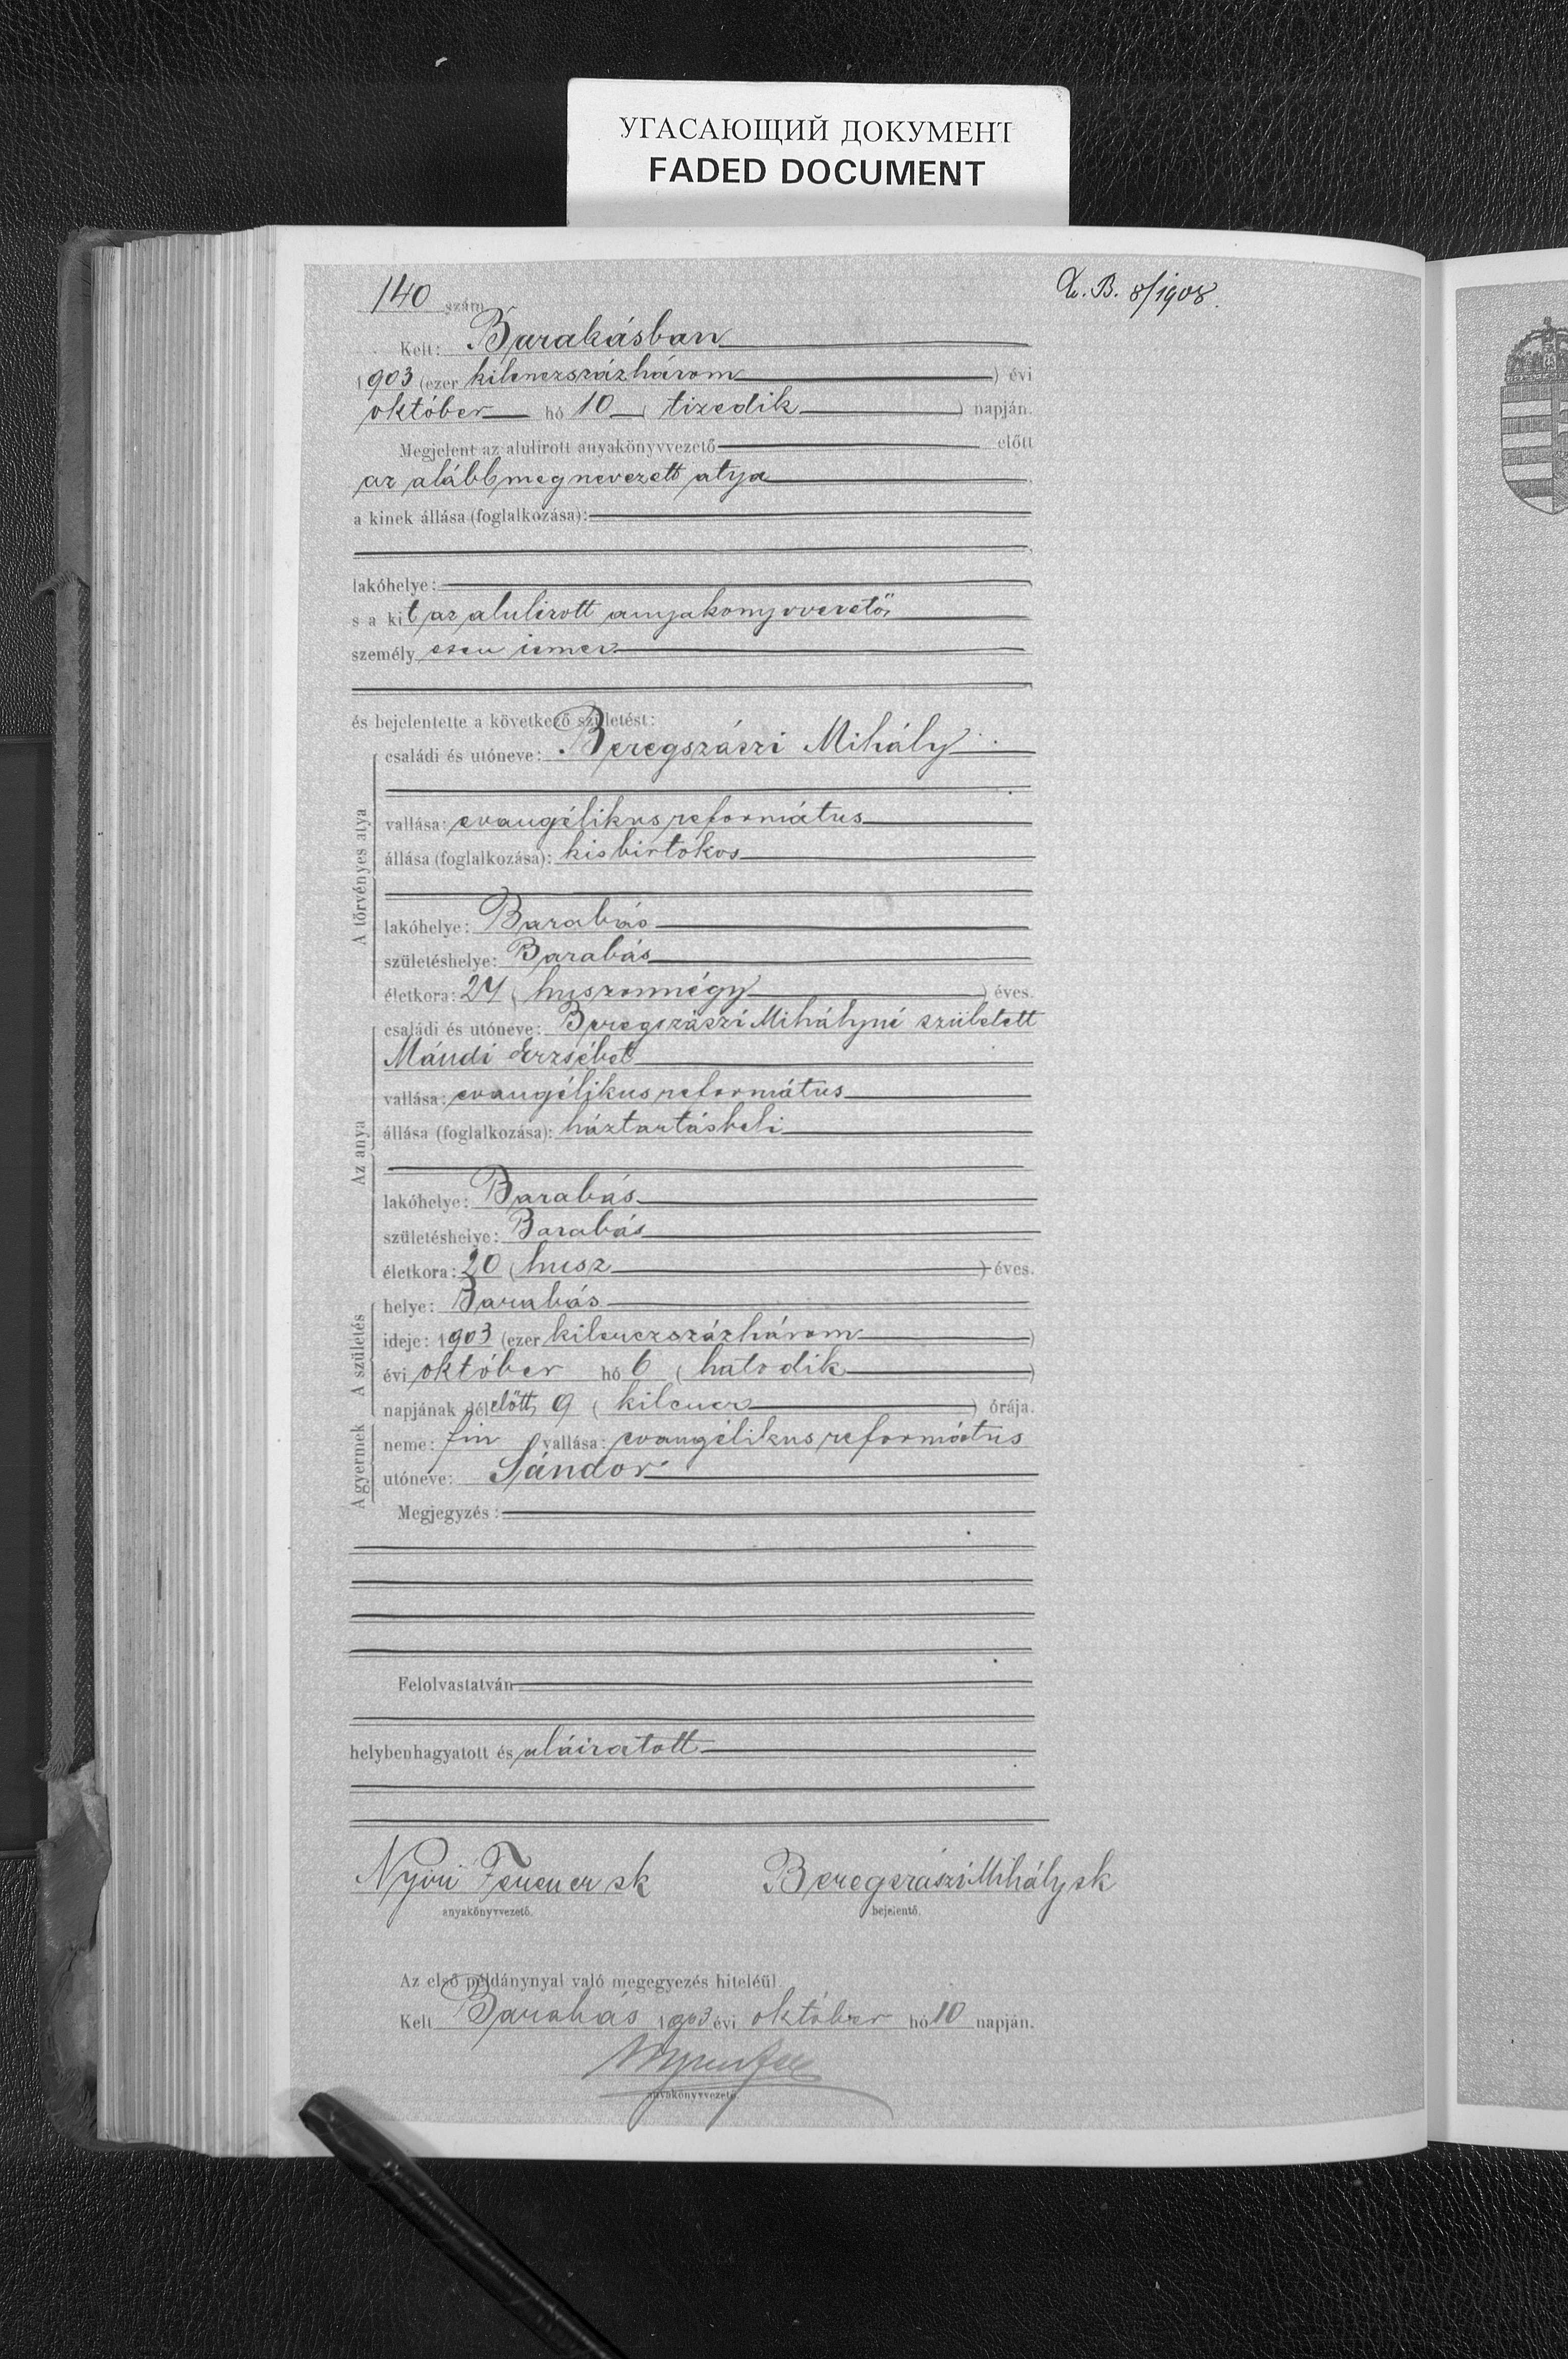 УГАСАЮЩИЙ ДОКУМЕНТ
FADED DOCUMENT
140 szám
B. 8/1908.
Kelt: Barabásban
1903 (ezer kilenczszázhárom) évi
október hó 10 (tizedik) napján.
Megjelent az alulírott anyakönyvvezető előtt
az alább megnevezett atya
a kinek állása (foglalkozása):
lakóhelye:
s a kit az alulirott anyakönyvvezető
személy esen ismer
és bejelentette a következő születést:
A törvényes atya
családi és utóneve: Beregszászi Mihály
vallása: evangélikus református
állása (foglalkozása): kisbirtokos
lakóhelye: Barabás
születéshelye: Barabás
életkora: 24 (huszonnégy) éves.
Az anya
családi és utóneve: Beregszászi Mihályné született
Mándi Erzsébet
vallása: evangélikus református
állása (foglalkozása): háztartásbeli
lakóhelye: Barabás
születéshelye: Barabás
életkora: 20 (husz) éves.
A születés
helye: Barabás
ideje: 1903 (ezer kilenczszázhárom)
évi október hó 6 (hatodik)
napjának délelőtt 9 (kilencz) órája.
A gyermek
neme: fiu vallása: evangélikus református
utóneve: Sándor
Megjegyzés:
Felolvastatván
helybenhagyatott és aláiratott
Nyiri Ferencz sk Beregszászi Mihály sk
anyakönyvvezető. bejelentő.
Az első példánynyal való megegyezés hiteléül.
Kelt Barabás 1903 évi október hó 10 napján.
anyakönyvvezető.